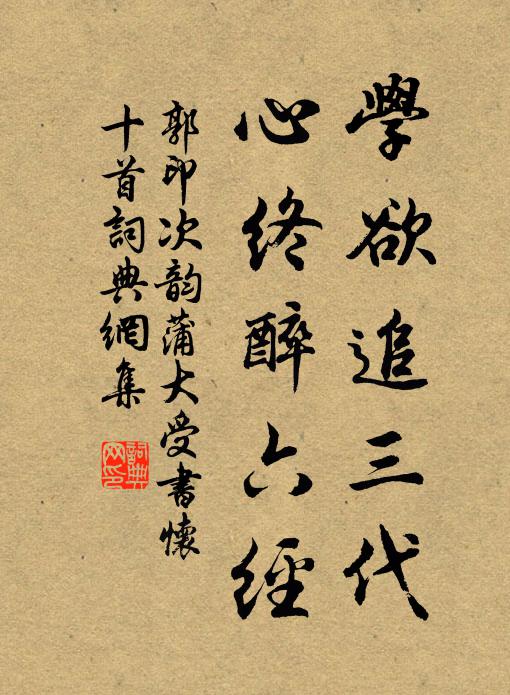 學欲追三代
心終醉六經
郭印次韵蒲大受書懷
十首詞典網集
詞典
网印